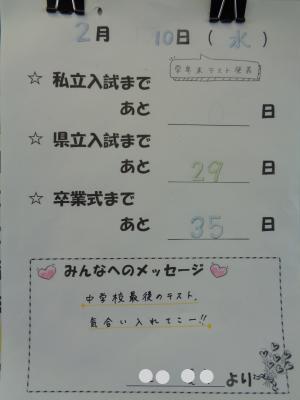 2月 10日(水)
学年末テスト発表
☆ 私立入試まで
あと 日
☆ 県立入試まで
あと 29 日
☆ 卒業式まで
あと 35 日
みんなへのメッセージ
中学校最後のテスト、
気合い入れてこー!!
より